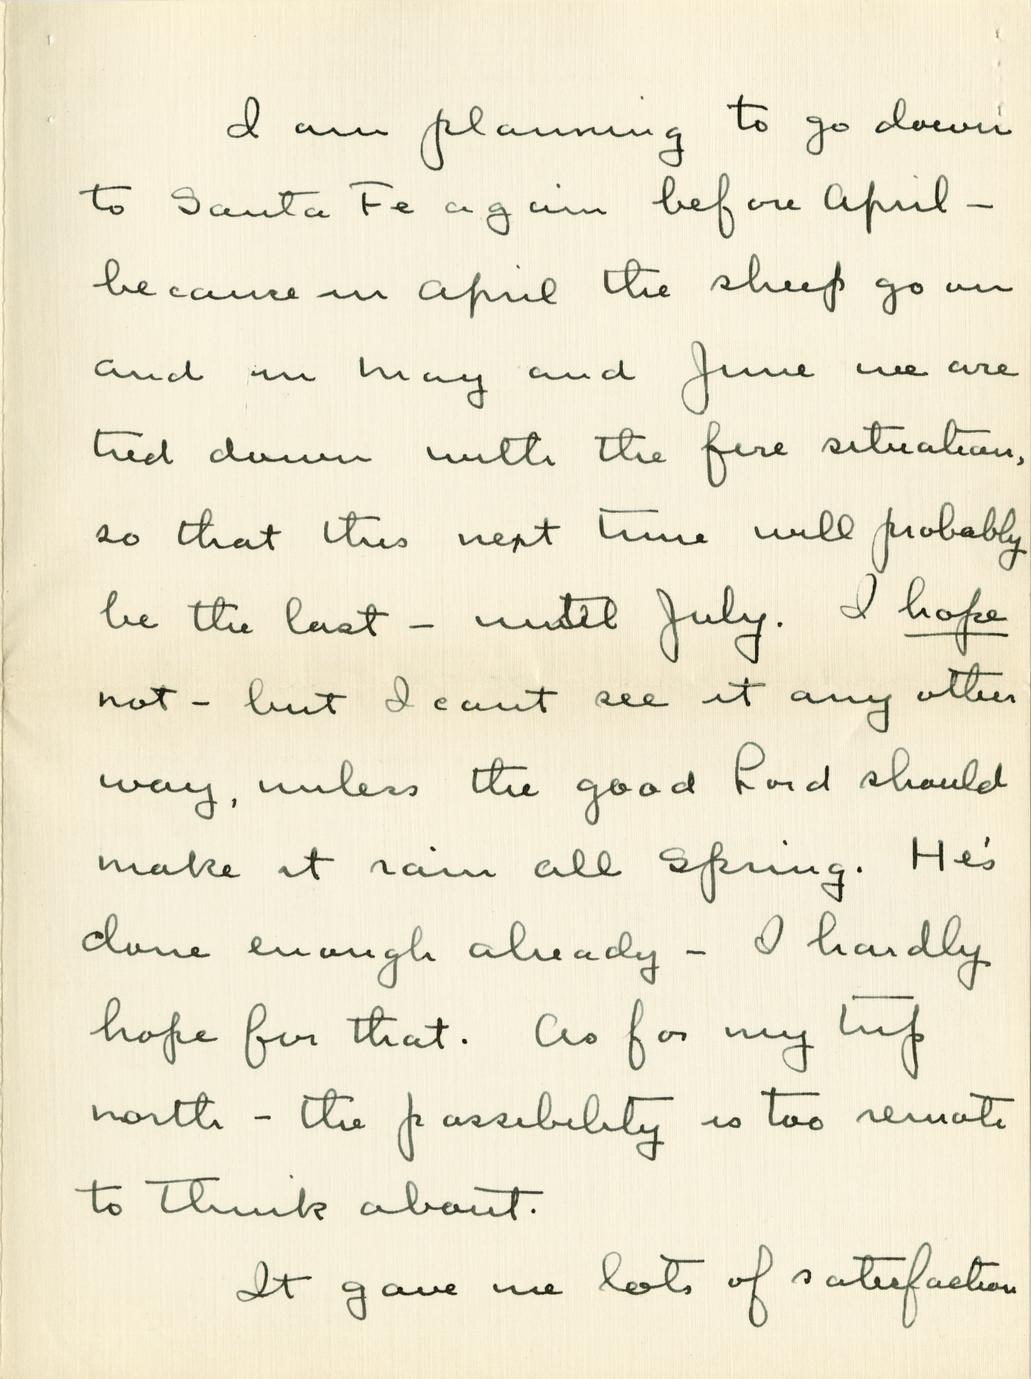 I am planning to go down
to Santa Fe again before April -
because in April the sheep go on
and in May and June we are
tied down with the fire situation,
so that this next time will probably
be the last - until July. I hope
not - but I cant see it any other
way, unless the good Lord should
make it rain all Spring. He's
done enough already - I hardly
hope for that. As for my trip
north - the possibility is too remote
to think about.
It gave me lots of satisfaction